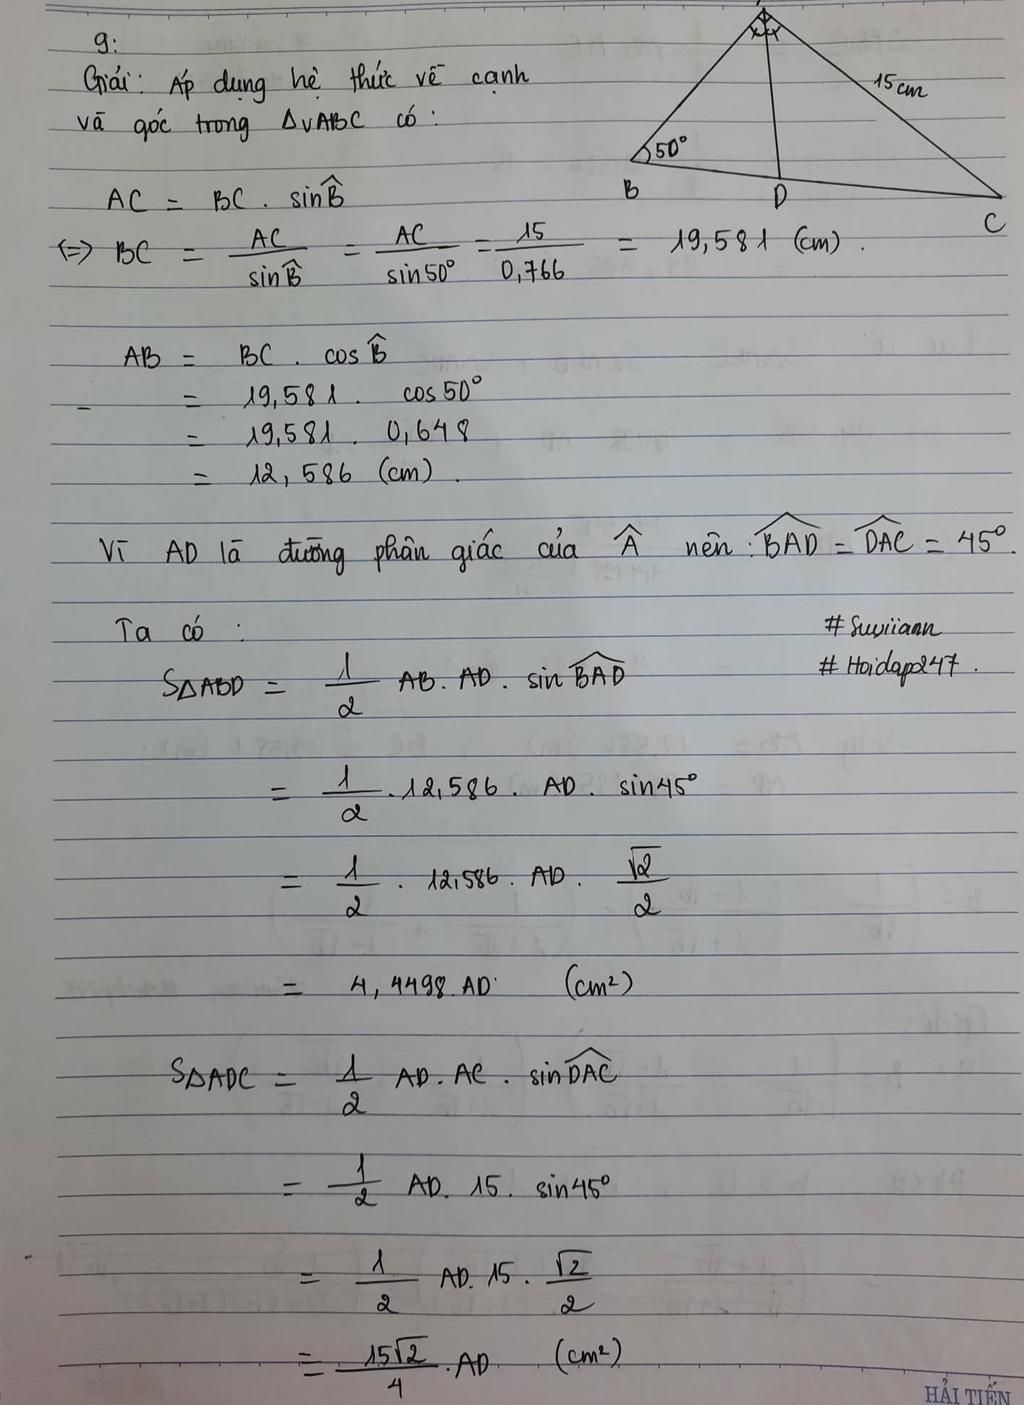 9:
Giải: Áp dụng hệ thức về cạnh
và góc trong ΔvABC có:
15cm
50°
B
D
C
AC = BC . sin B̂
<=> BC = AC / sin B̂ = AC / sin50° = 15 / 0,766 = 19,581 (cm).
AB = BC . cos B̂
= 19,581. cos50°
= 19,581. 0,648
= 12,586 (cm).
Vì AD là đường phân giác của Â nên: BAD = DAC = 45°.
Ta có :
#Suviiann
#Hoidap247.
SΔABD = 1/2 AB. AD. sin BAD
= 1/2 . 12,586. AD. sin45°
= 1/2 . 12,586. AD. √2/2
= 4,4498.AD (cm²)
SΔADC = 1/2 AD. AC . sin DAC
= 1/2 AD. 15. sin45°
= 1/2 AD. 15. √2/2
= 15√2/4 . AD (cm²)
HẢI TIẾN